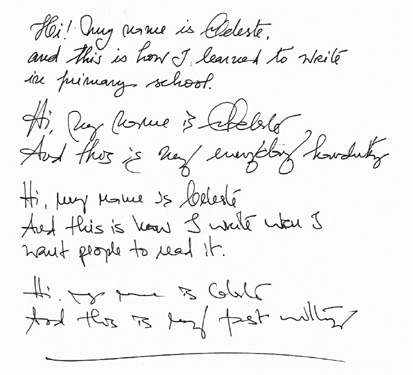 Hi! My name is Celeste,
and this is how I learned to write
in primary school.
Hi, my name is Celeste
And this is my everyday handwriting
Hi, my name is Celeste
And this is how I write when I
want people to read it.
Hi. my name is Celeste
And this is my fast writing